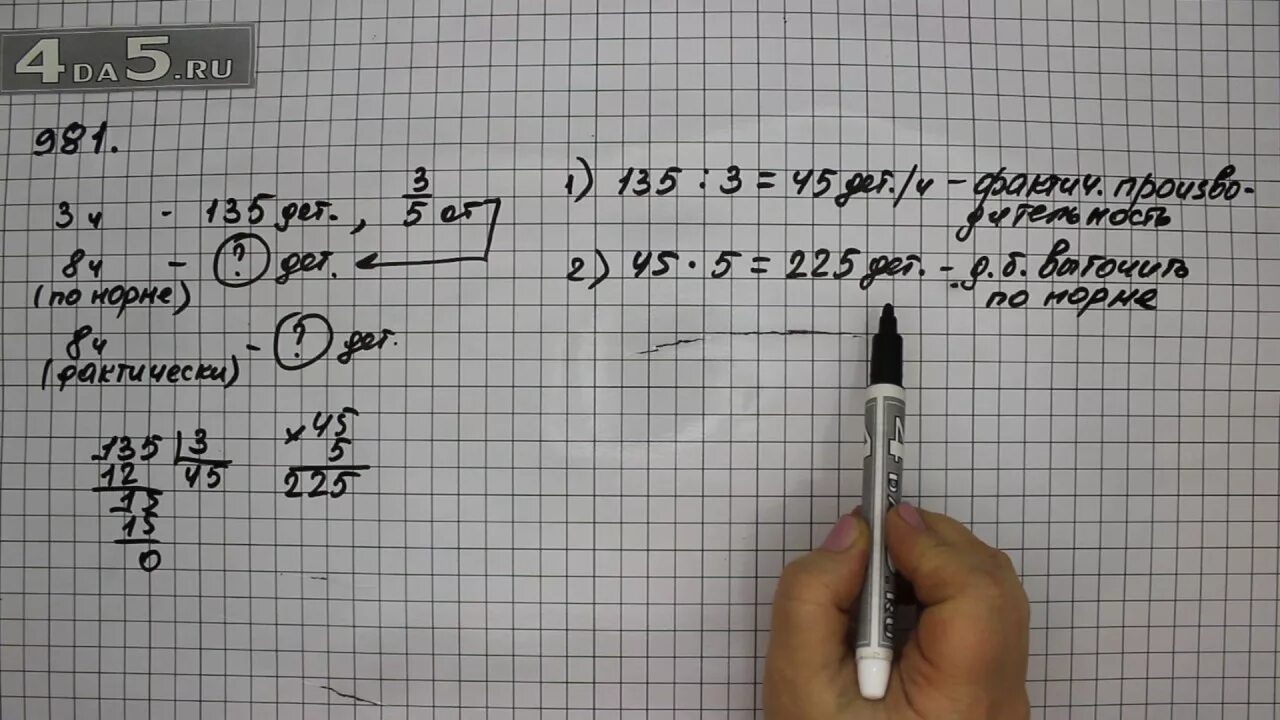 4DA5.RU
981.
3 ч - 135 дет., 3/5 от
8ч - ? дет.
(по норме)
8ч - ? дет.
(фактически)
135 | 3
12 45
15
15
0
× 45
5
225
1) 135 : 3 = 45 дет./ч - фактич. произво-
дительность
2) 45 · 5 = 225 дет. - д.б. выточить
по норме
4DA5.RU